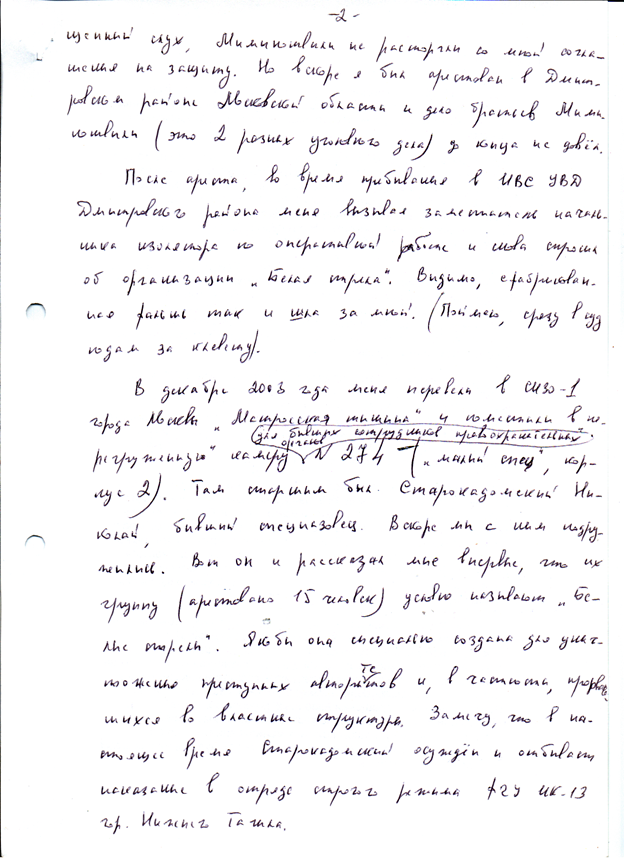 -2-
щенный слух, Миминошвили не расторгли со мной согла-
шения на защиту. Но вскоре я был арестован в Дмит-
ровском районе Московской области и дело братьев Мими-
ношвили (это 2 разных уголовных дела) до конца не довёл.
После ареста, во время пребывания в ИВС УВД
Дмитровского района меня вызывал заместитель началь-
ника изолятора по оперативной работе и снова спросил
об организации „Белая стрела“. Видимо, сфабрикован-
ная фальшь так и шла за мной. (Поймаю, сразу в суд
подам за клевету).
В декабре 2003 года меня перевели в СИЗО-1
города Москвы „Матросская тишина“ и поместили в пе-
для бывших сотрудников правоохранительных
органов
регруженную камеру N 274 („малый спец“, кор-
пус 2). Там старшим был Старокадомский Ни-
колай, бывший спецназовец. Вскоре мы с ним подру-
жились. Вот он и рассказал мне впервые, что их
группу (арестовано 15 человек) условно называют „Бе-
лые стрелы“. Якобы она специально создана для унич-
тожения преступных авторитетов и, в частности, прорвав-
шихся во властные структуры. Замечу, что в на-
стоящее время Старокадомский осуждён и отбывает
наказание в отряде строгого режима ФГУ ИК-13
гор. Нижнего Тагила.